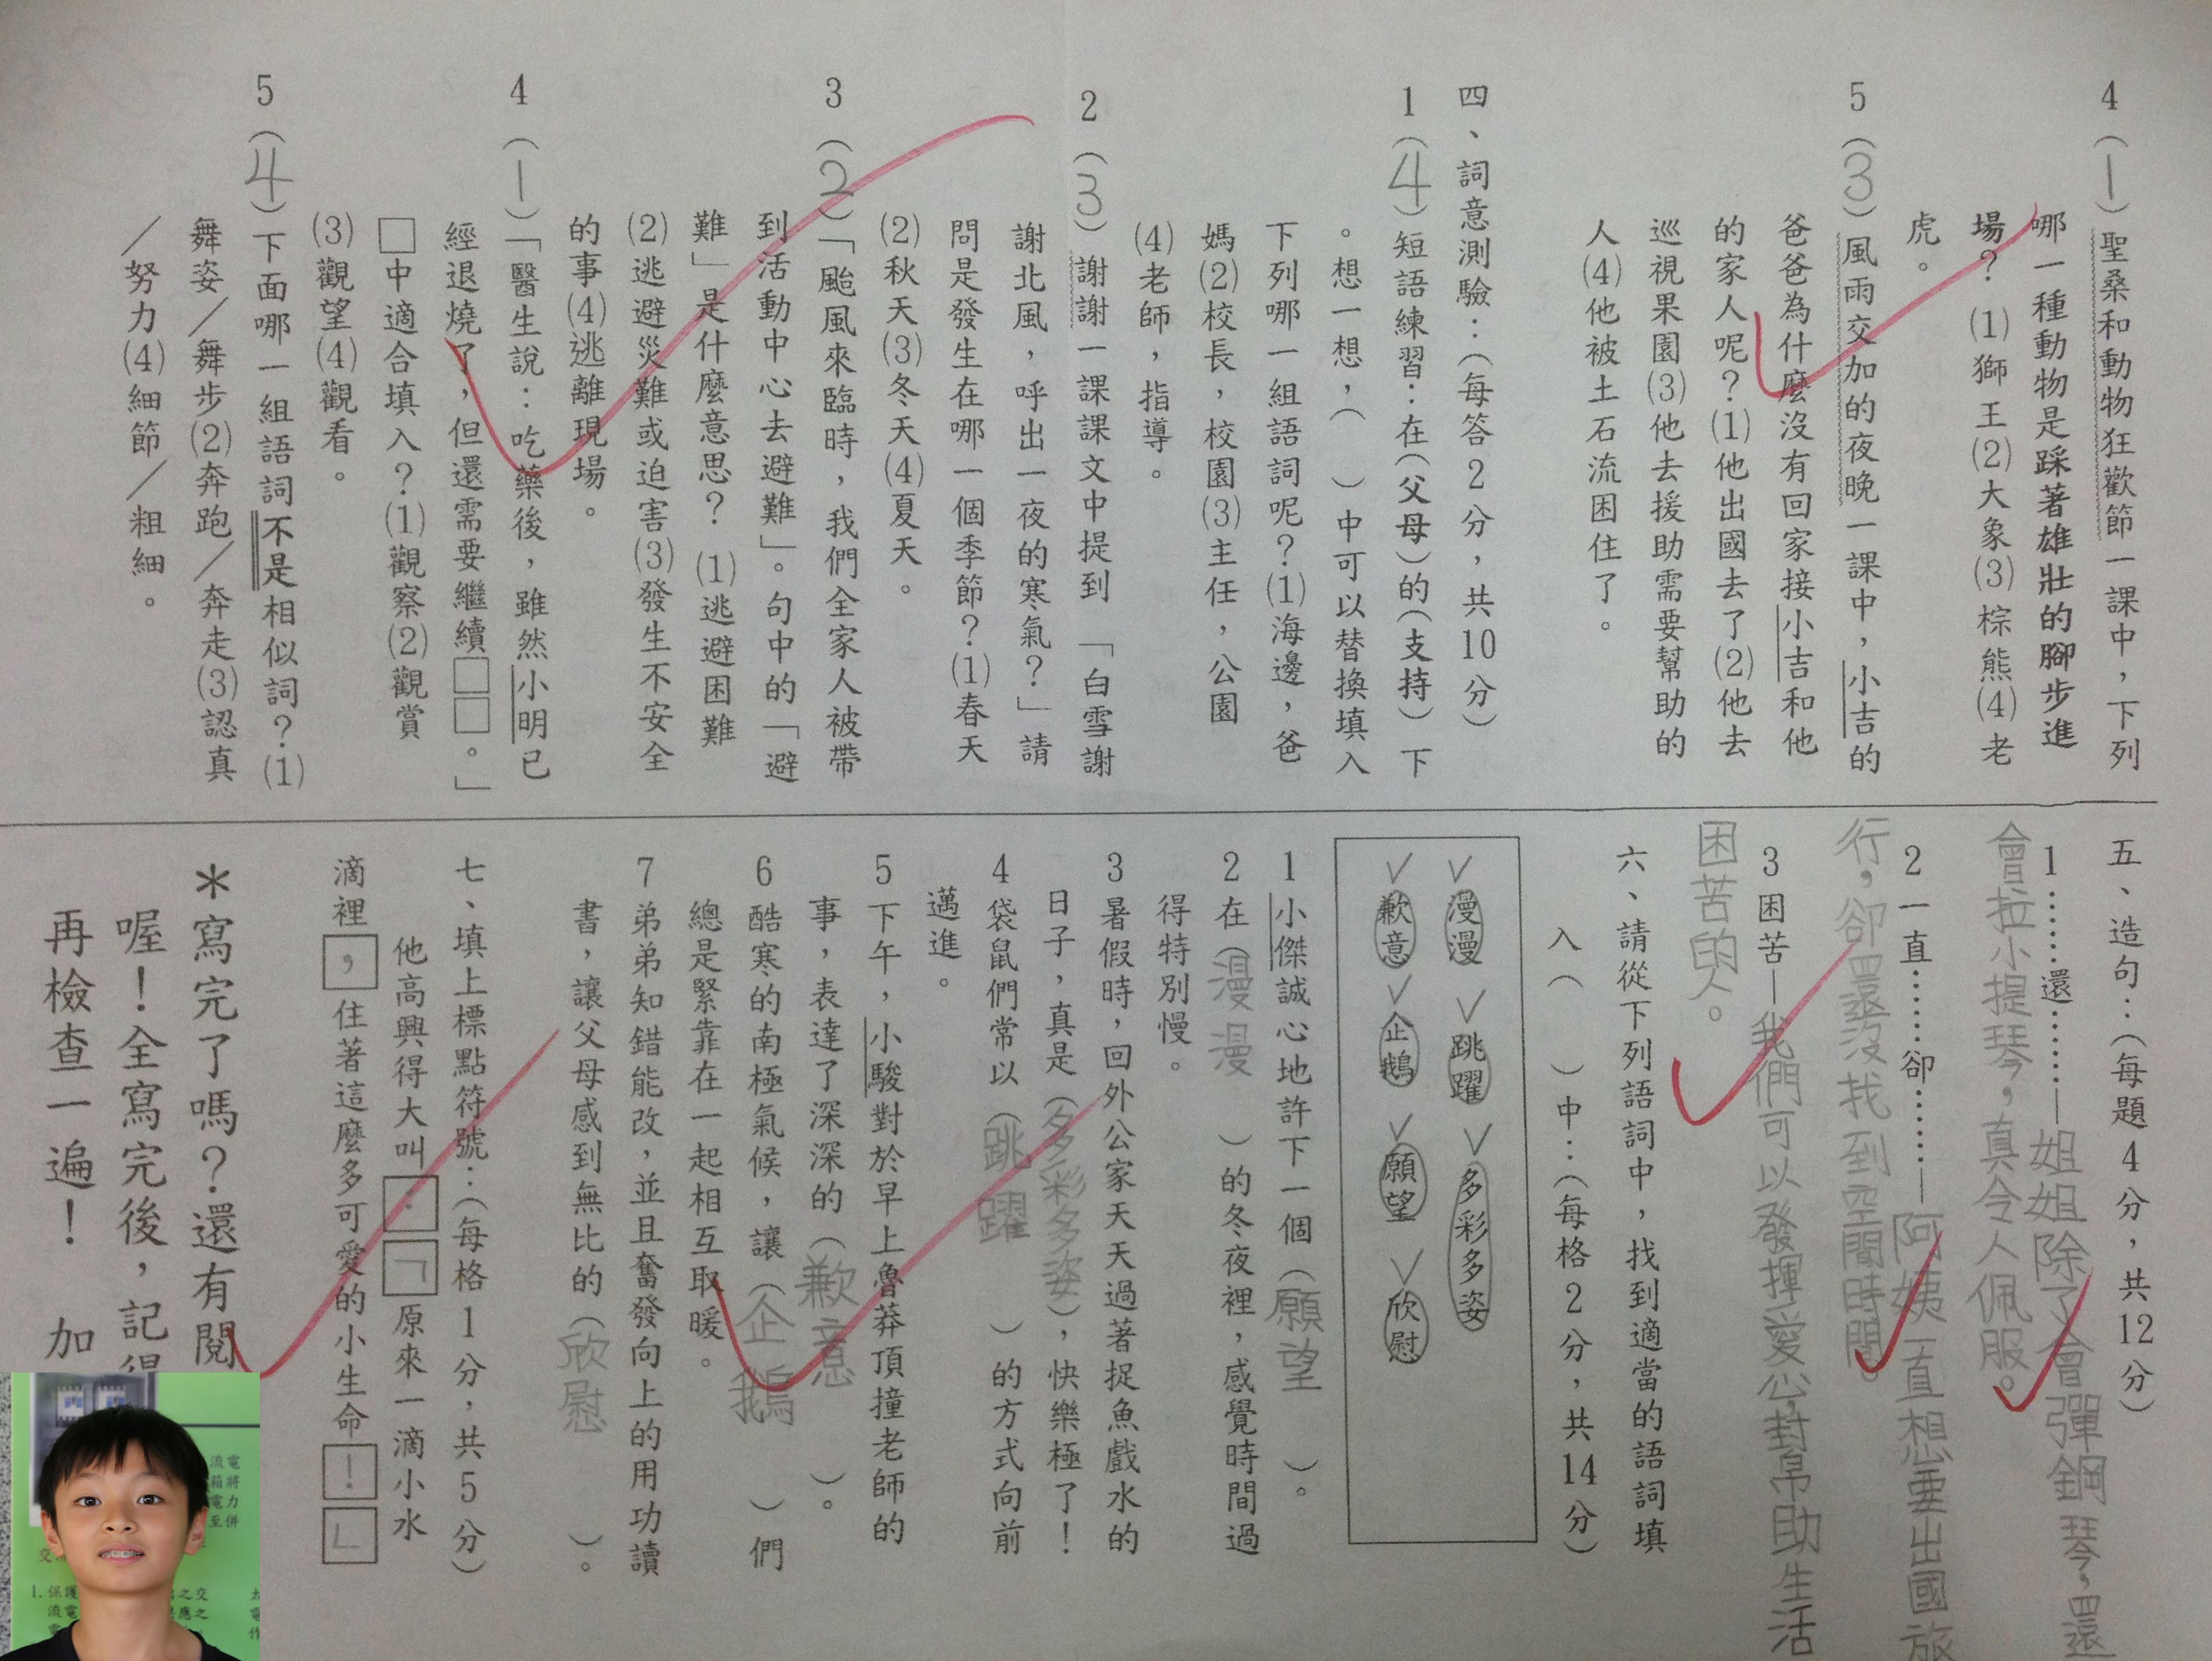 4（1）聖桑和動物狂歡節一課中，下列
哪一種動物是踩著雄壯的腳步進
場？(1)獅王(2)大象(3)棕熊(4)老
虎。
5（3）風雨交加的夜晚一課中，小吉的
爸爸為什麼沒有回家接小吉和他
的家人呢？(1)他出國去了(2)他去
巡視果園(3)他去援助需要幫助的
人(4)他被土石流困住了。
四、詞意測驗：（每答2分，共10分）
1（4）短語練習：在（父母）的（支持）下
。想一想，（ ）中可以替換填入
下列哪一組語詞呢？(1)海邊，爸
媽(2)校長，校園(3)主任，公園
(4)老師，指導。
2（3）謝謝一課課文中提到「白雪謝
謝北風，呼出一夜的寒氣？」請
問是發生在哪一個季節？(1)春天
(2)秋天(3)冬天(4)夏天。
3（2）「颱風來臨時，我們全家人被帶
到活動中心去避難」。句中的「避
難」是什麼意思？(1)逃避困難
(2)逃避災難或迫害(3)發生不安全
的事(4)逃離現場。
4（1）「醫生說：吃藥後，雖然小明已
經退燒了，但還需要繼續□□。」
□中適合填入？(1)觀察(2)觀賞
(3)觀望(4)觀看。
5（4）下面哪一組語詞不是相似詞？(1)
舞姿／舞步(2)奔跑／奔走(3)認真
／努力(4)細節／粗細。
五、造句：（每題4分，共12分）
1……還……—姐姐除了會彈鋼琴，還
會拉小提琴，真令人佩服。
2一直……卻……—阿姨一直想要出國旅
行，卻還沒找到空閒時間。
3困苦—我們可以發揮愛心，封帛助生活
困苦的人。
六、請從下列語詞中，找到適當的語詞填
入（ ）中：（每格2分，共14分）
漫漫 跳躍 多彩多姿
歉意 企鵝 願望 欣慰
1小傑誠心地許下一個（願望）。
2在（漫漫）的冬夜裡，感覺時間過
得特別慢。
3暑假時，回外公家天天過著捉魚戲水的
日子，真是（多彩多姿），快樂極了！
4袋鼠們常以（跳躍）的方式向前
邁進。
5下午，小駿對於早上魯莽頂撞老師的
事，表達了深深的（歉意）。
6酷寒的南極氣候，讓（企鵝）們
總是緊靠在一起相互取暖。
7弟弟知錯能改，並且奮發向上的用功讀
書，讓父母感到無比的（欣慰）。
七、填上標點符號：（每格1分，共5分）
他高興得大叫：「原來一滴小水
滴裡，住著這麼多可愛的小生命！」
＊寫完了嗎？還有閱
喔！全寫完後，記得
再檢查一遍！ 加
流電
箱將
電力
至併
交
1.保護
流電
之交
應之